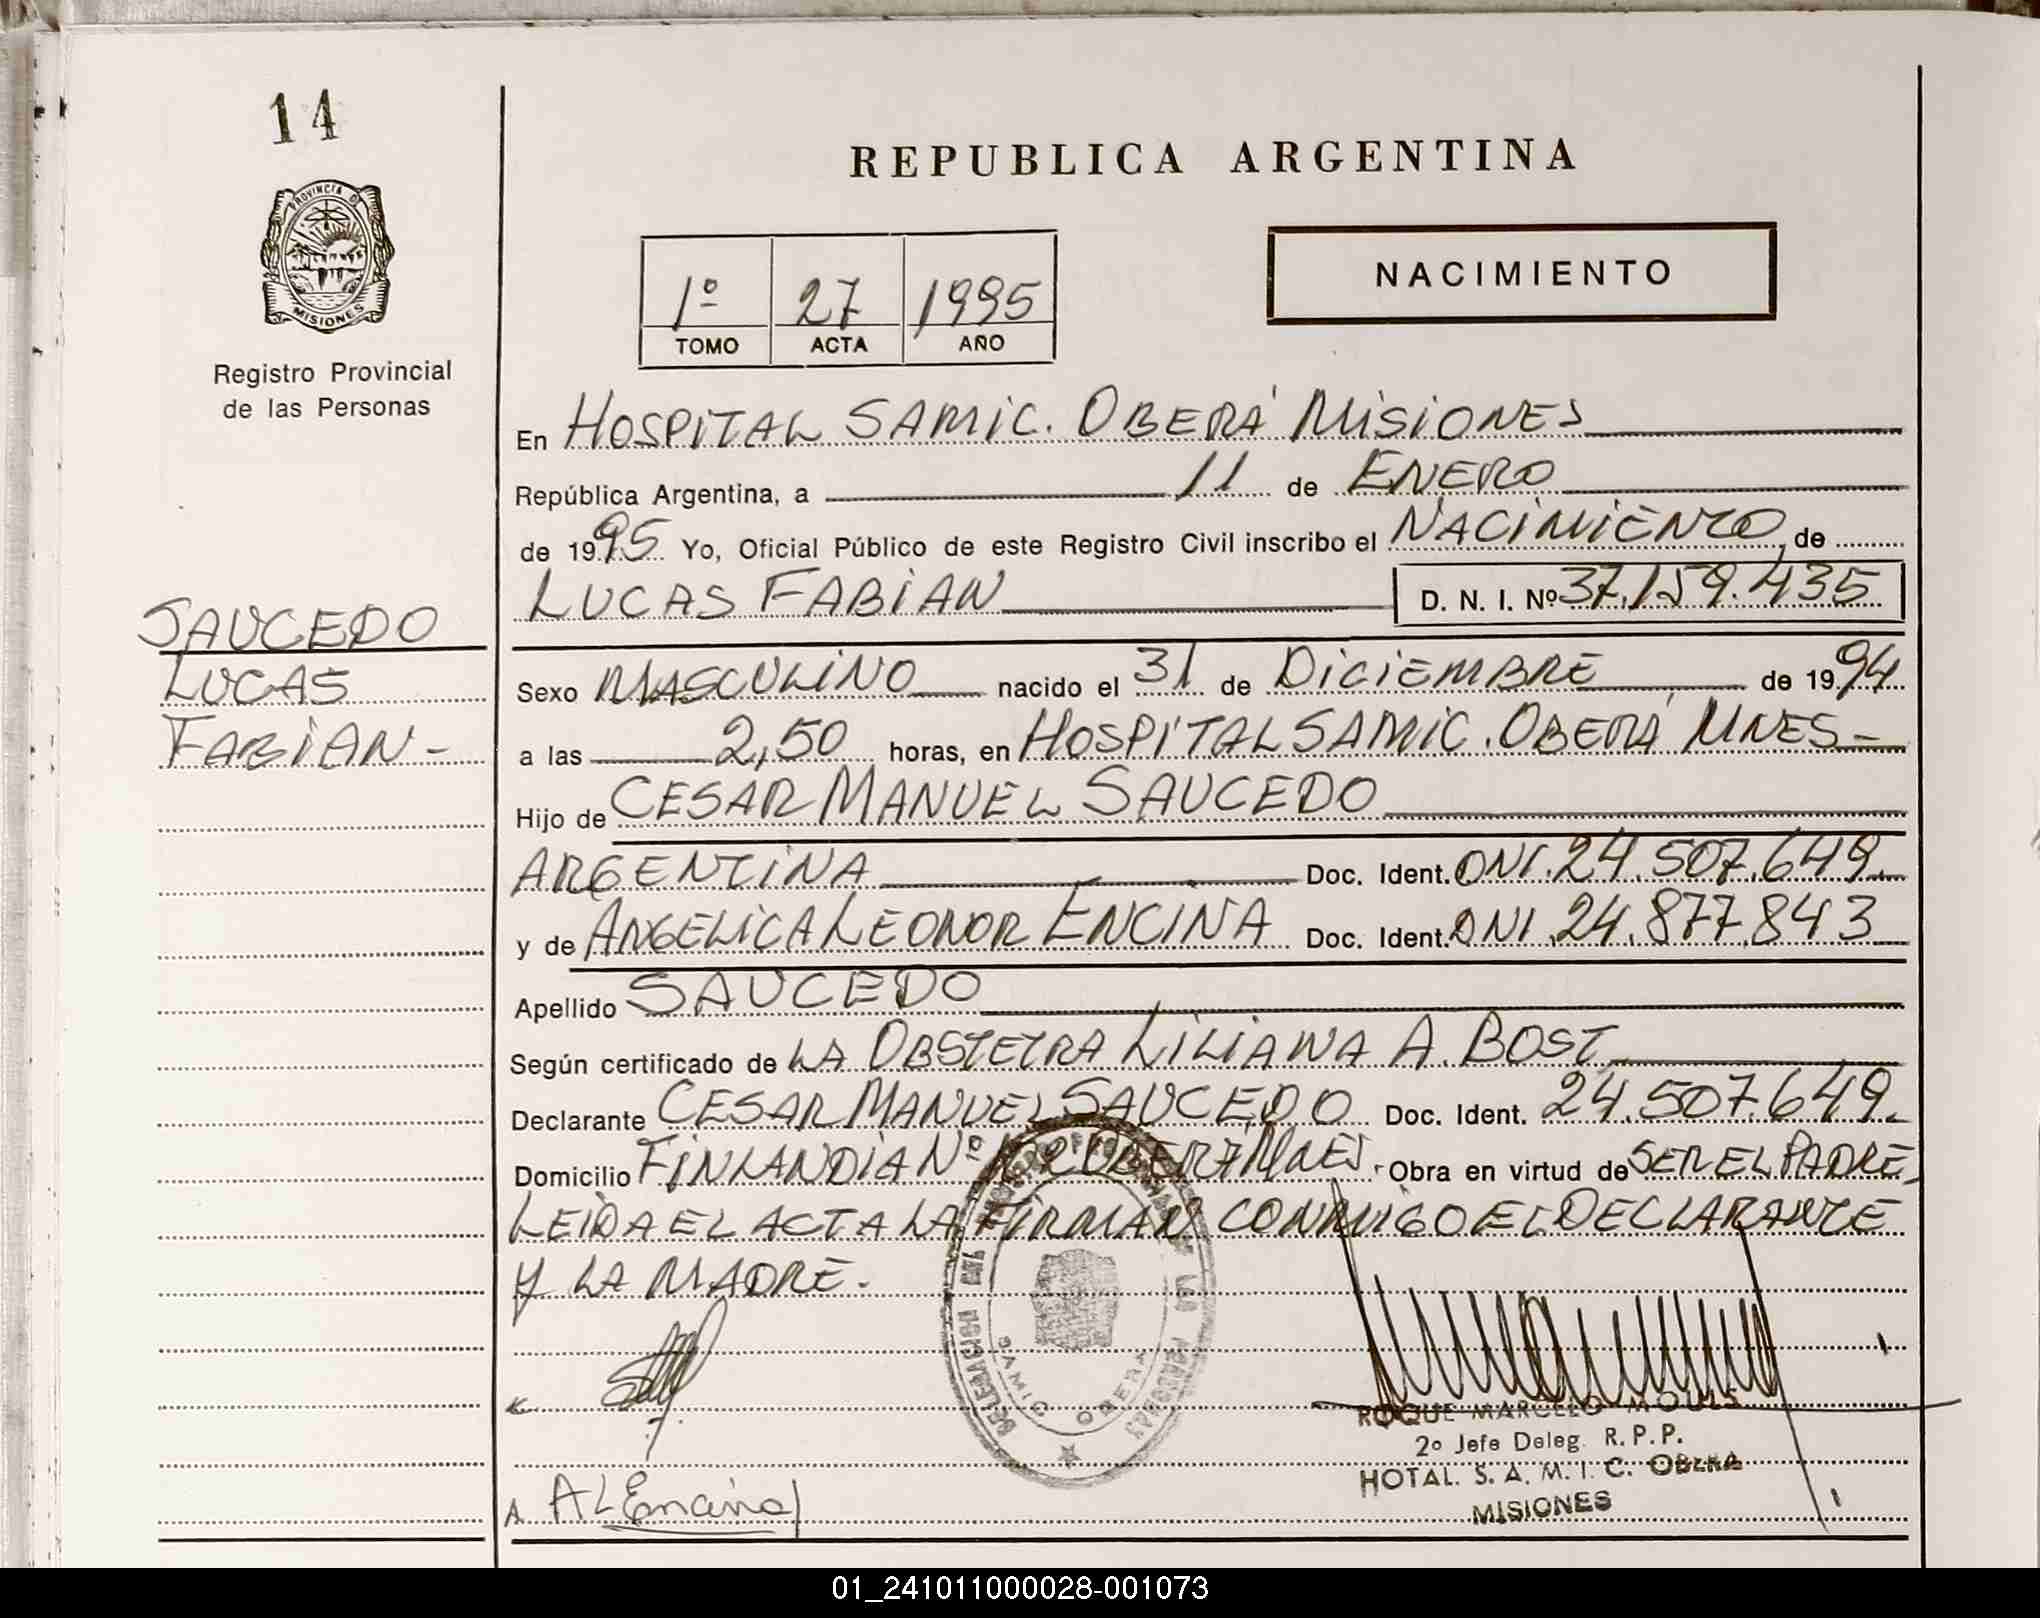 14
PROVINCIA DE
MISIONES
Registro Provincial
de las Personas
SAUCEDO
LUCAS
FABIAN -
REPUBLICA ARGENTINA
1º 27 1995
TOMO ACTA AÑO
NACIMIENTO
En HOSPITAL SAMIC. OBERÁ MISIONES
República Argentina, a 11 de ENERO
de 1995 Yo, Oficial Público de este Registro Civil inscribo el NACIMIENTO, de
LUCAS FABIAN D. N. I. Nº 37.159.435
Sexo MASCULINO nacido el 31 de DICIEMBRE de 1994
a las 2,50 horas, en HOSPITAL SAMIC. OBERÁ MNES -
Hijo de CESAR MANUEL SAUCEDO
ARGENTINA Doc. Ident. DNI. 24.507.649.
y de ANGELICA LEONOR ENCINA Doc. Ident. DNI. 24.877.843
Apellido SAUCEDO
Según certificado de LA OBSTETRA LILIANA A. BOST
Declarante CESAR MANUEL SAUCEDO Doc. Ident. 24.507.649.
Domicilio FINLANDIA Nº OBERÁ MNES. Obra en virtud de SER EL PADRE,
LEIDA EL ACTA LA FIRMAN CONMIGO EL DECLARANTE
Y LA MADRE.
DELEGACION
SAMIC OBERA
ROQUE MARCELO
2º Jefe Deleg. R. P. P.
HOTAL. S. A. M. I. C. OBERA
MISIONES
A L Encina
01_241011000028-001073